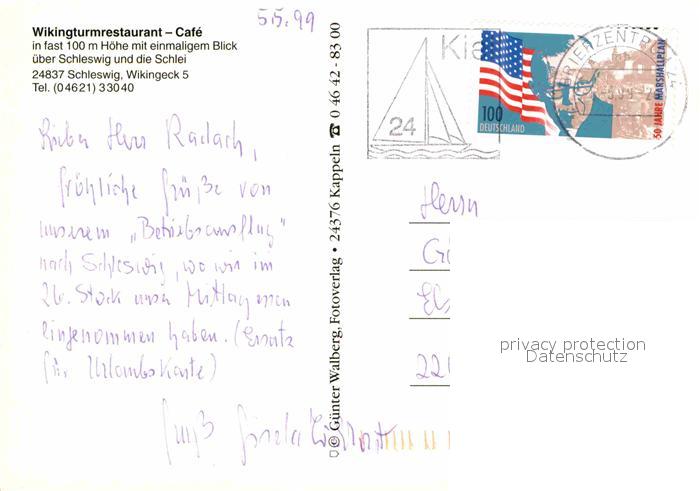 5.5.99
Wikingturmrestaurant – Café
in fast 100 m Höhe mit einmaligem Blick
über Schleswig und die Schlei
24837 Schleswig, Wikingeck 5
Tel. (0 46 21) 3 30 40
Lieber Herr Radach,
fröhliche Grüße von
unserem „Betriebsausflug"
nach Schleswig, wo wir im
26. Stock unser Mittagessen
eingenommen haben. (Ersatz
für Urlaubskarte)
Gruß Gisela
© Günter Walberg, Fotoverlag • 24376 Kappeln ☎ 0 46 42 - 83 00
Kie
24
BRIEFZENTRUM 24
100
DEUTSCHLAND
50 JAHRE MARSHALLPLAN
Herrn
G
El
22
privacy protection
Datenschutz